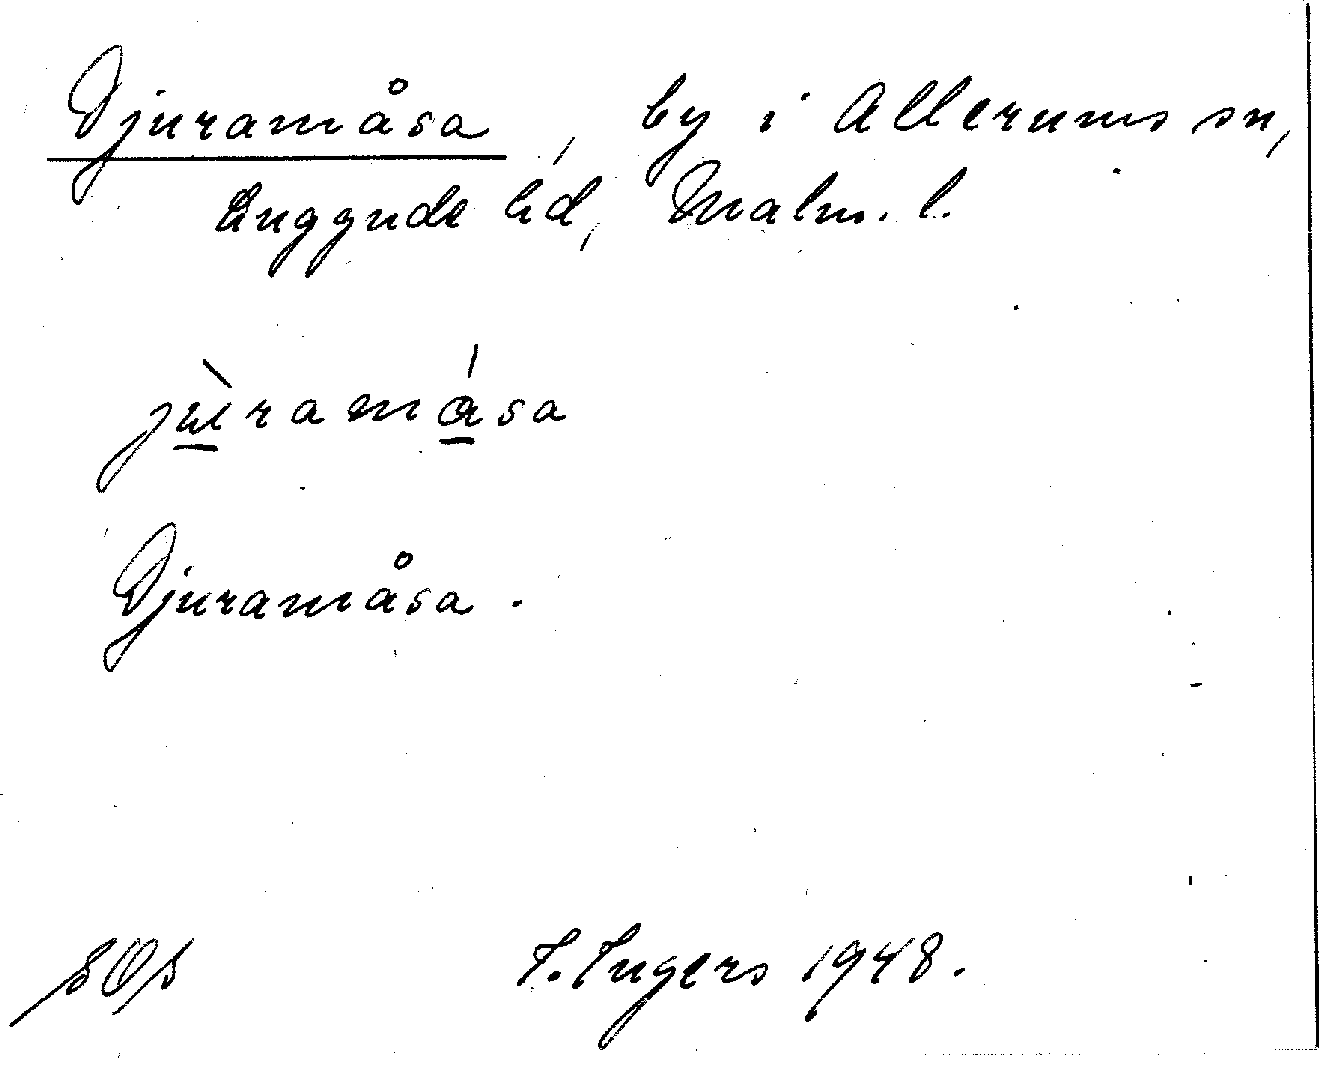 Djuramåsa, by i Allerums sn,
Luggude hd, Malm. l.
jùramása
Djuramåsa.
SOS I. Ingers 1948.